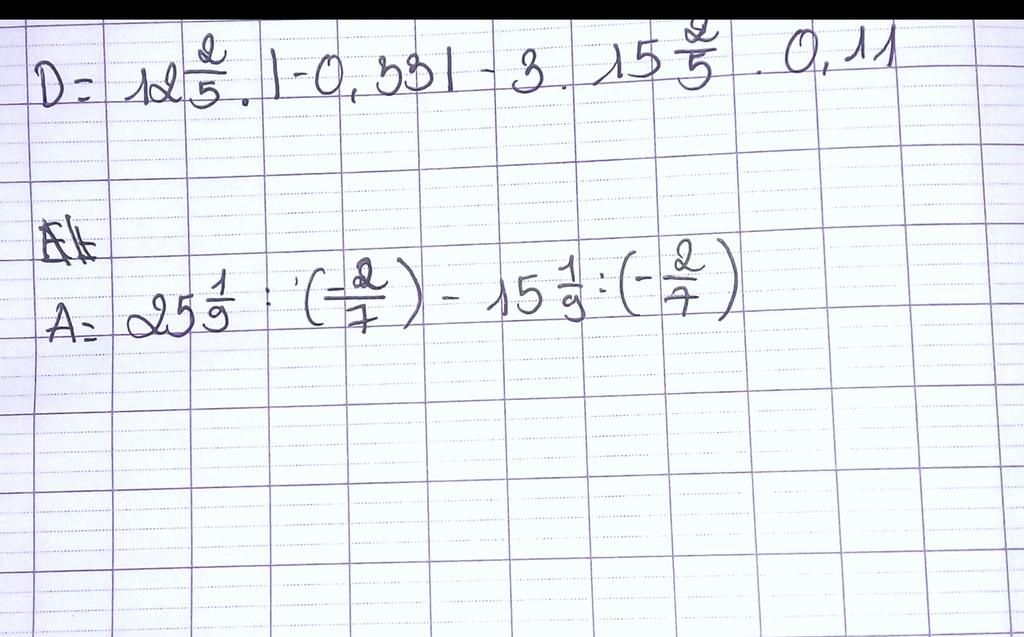 D = 12 2/5 . |-0,33| - 3 . 15 2/5 . 0,11
A = 25 1/9 : (-2/7) - 15 1/9 : (-2/7)